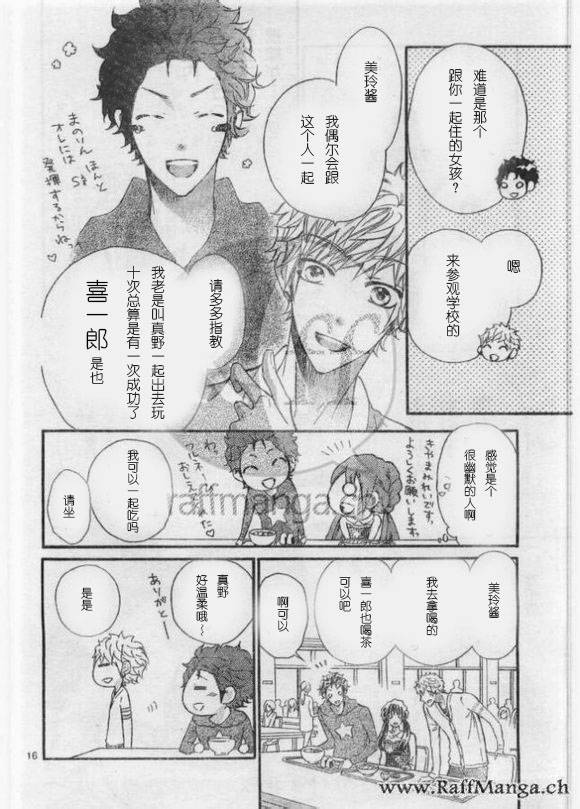 难道是那个
跟你一起住的女孩？
嗯
来参观学校的
美玲酱
我偶尔会跟
这个人一起
まのりん ほんと
オレには Sを
発揮するからねっ♡
请多多指教
我老是叫真野一起出去玩
十次总算是有一次成功了
喜一郎
是也
感觉是个
很幽默的人啊
きやまみれいです。
よろしくお願いします。
わ。
フルネ
おしえ
我可以一起吃吗
请坐
美玲酱
我去拿喝的
喜一郎也喝茶
可以吧
啊可以
真野
好温柔哦~
ありがとー
是是
raffmanga.ch
16
www.RaffManga.ch